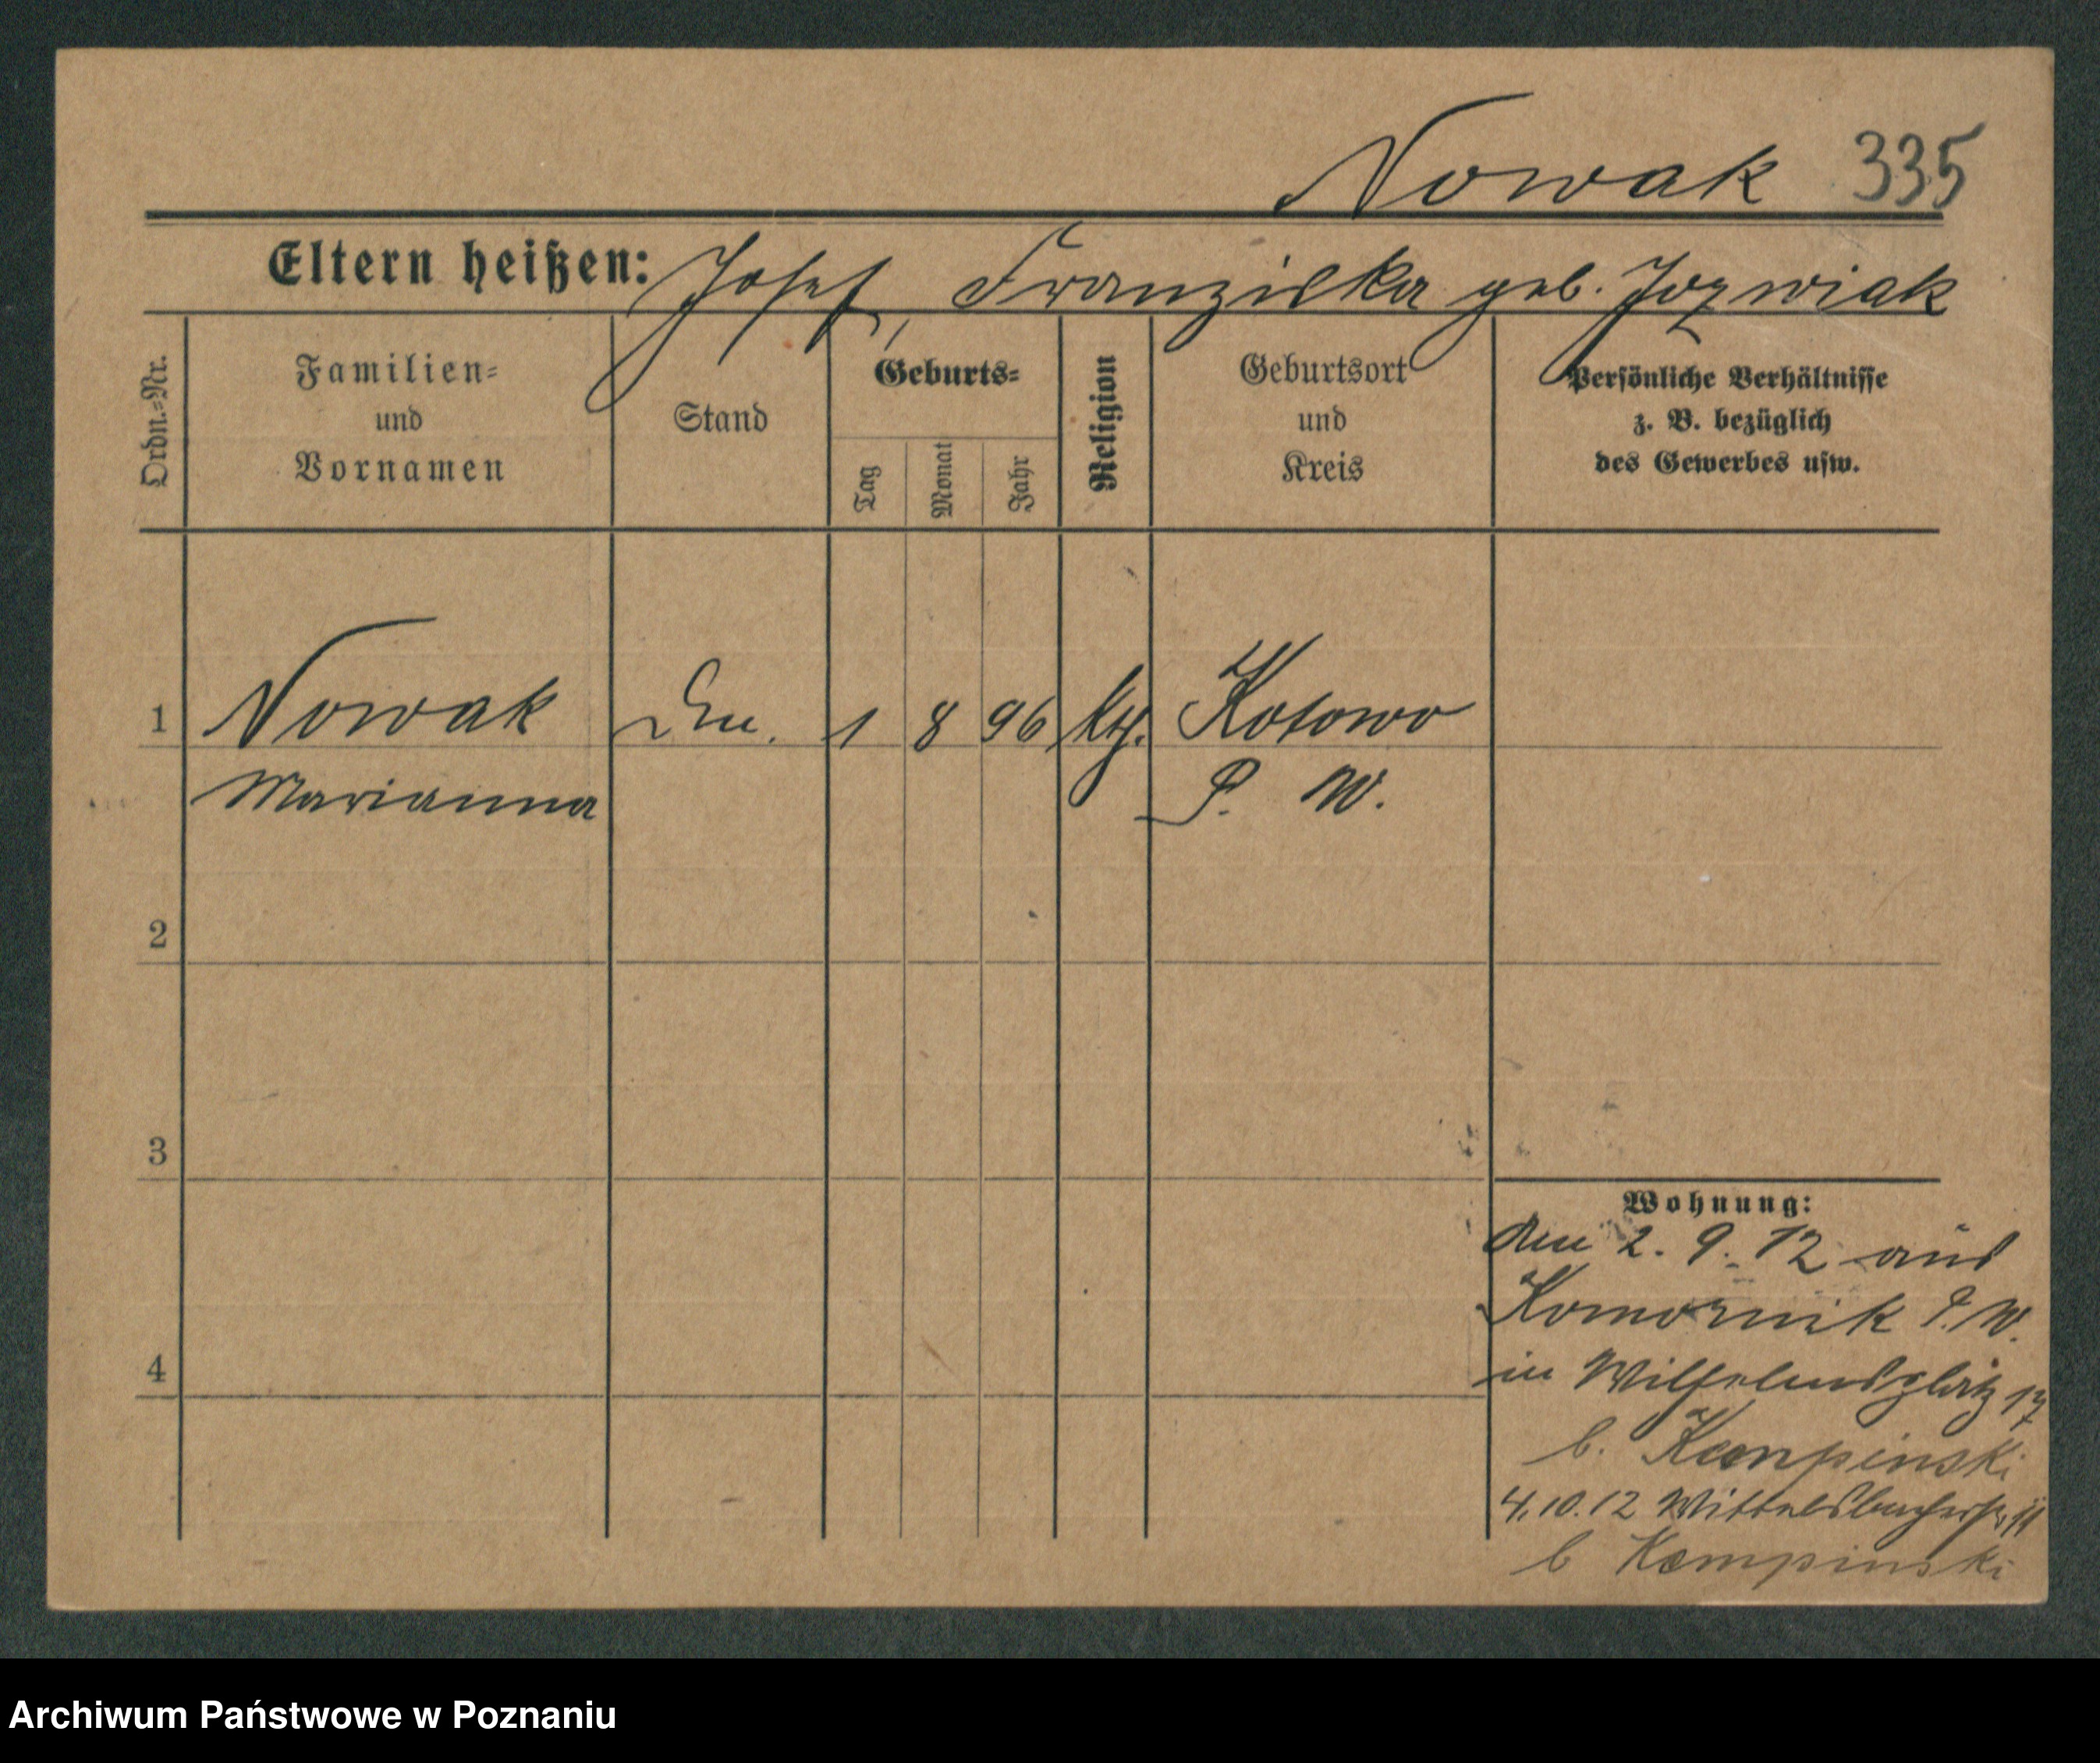 Nowak 335
Eltern heißen: Josef, Franziska geb. Jozwiak
Ordn.-Nr.
Familien-
und
Vornamen
Stand
Geburts-
Tag
Monat
Jahr
Religion
Geburtsort
und
Kreis
Persönliche Verhältnisse
z. B. bezüglich
des Gewerbes usw.
1 Nowak 1 8 96 kth. Kotowo
Marianna P. W.
2
3
4
Wohnung:
den 2. 9. 12 aus
Komornik P. W.
in Wilhelmsplatz 17
b. Kempinski
4.10.12 Wittelsbacherstr. 11
b Kempinski
Archiwum Państwowe w Poznaniu